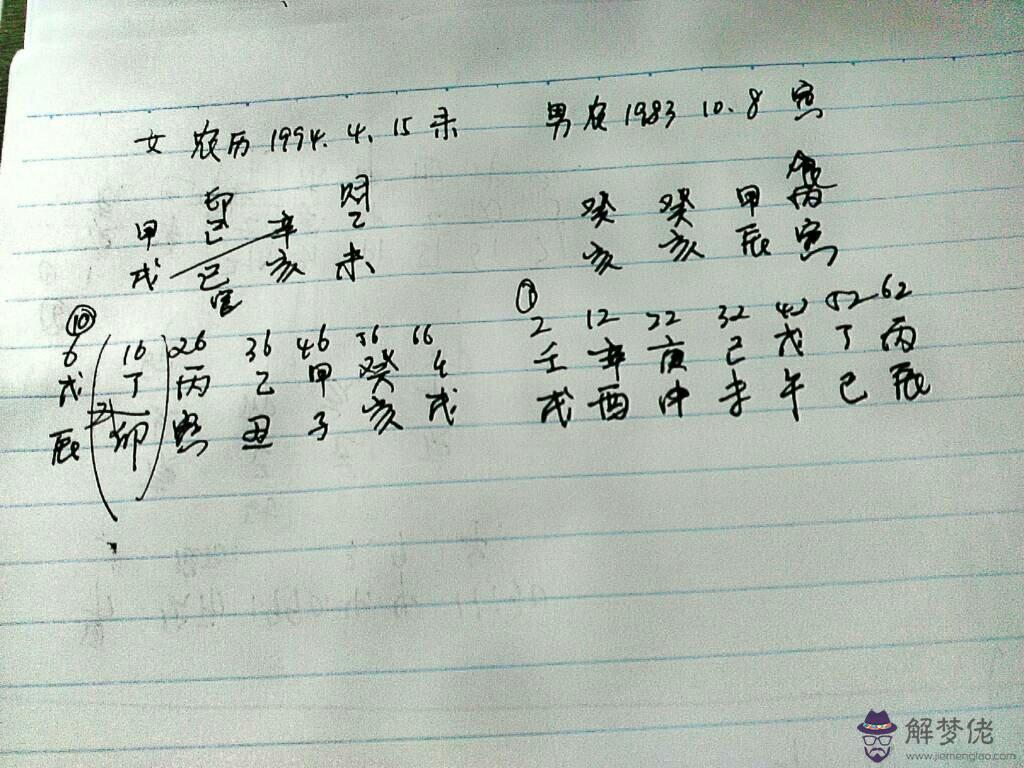 女 农历 1994. 4. 15 未 男 农 1983 10. 8 寅
印 财
甲 己 辛 乙 癸 癸 甲 丙
戌 巳 亥 未 亥 亥 辰 寅
官
⑩ ①
6 16 26 36 46 56 66 2 12 22 32 42 52 62
戊 丁 丙 乙 甲 癸 壬 辛 庚 己 戊 丁 丙
辰 卯 寅 丑 子 亥 戌 戌 酉 申 未 午 巳 辰
解梦佬
www.jiemenglao.com